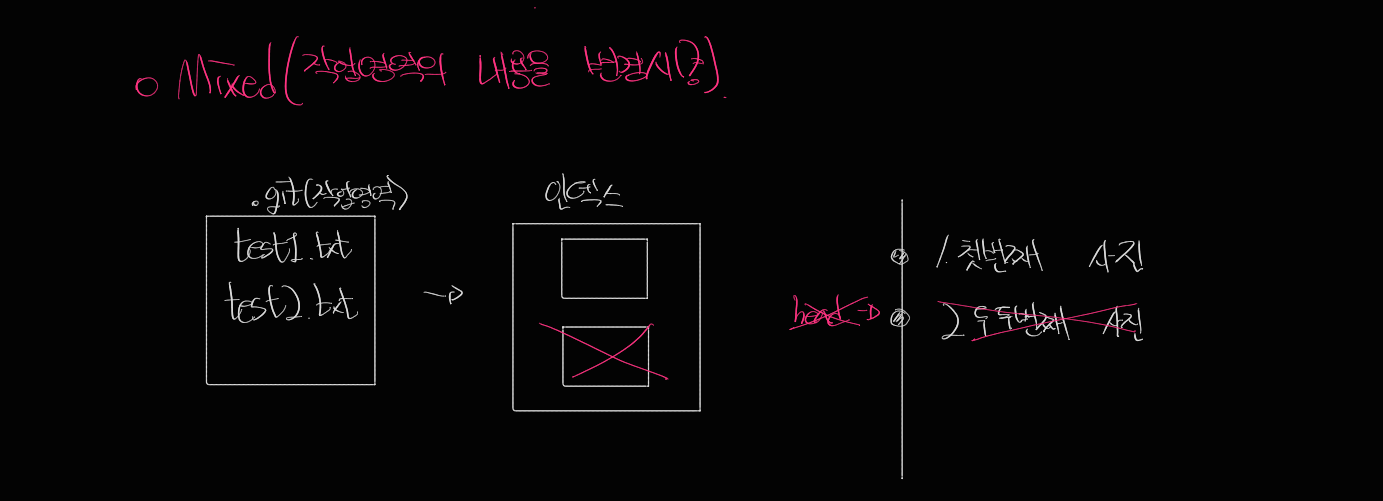 o Mixed(작업영역의 내용을 변경시?)
.git(작업영역)
test1.txt
test2.txt
인덱스
1. 첫번째 사진
head
2 두번째 사진